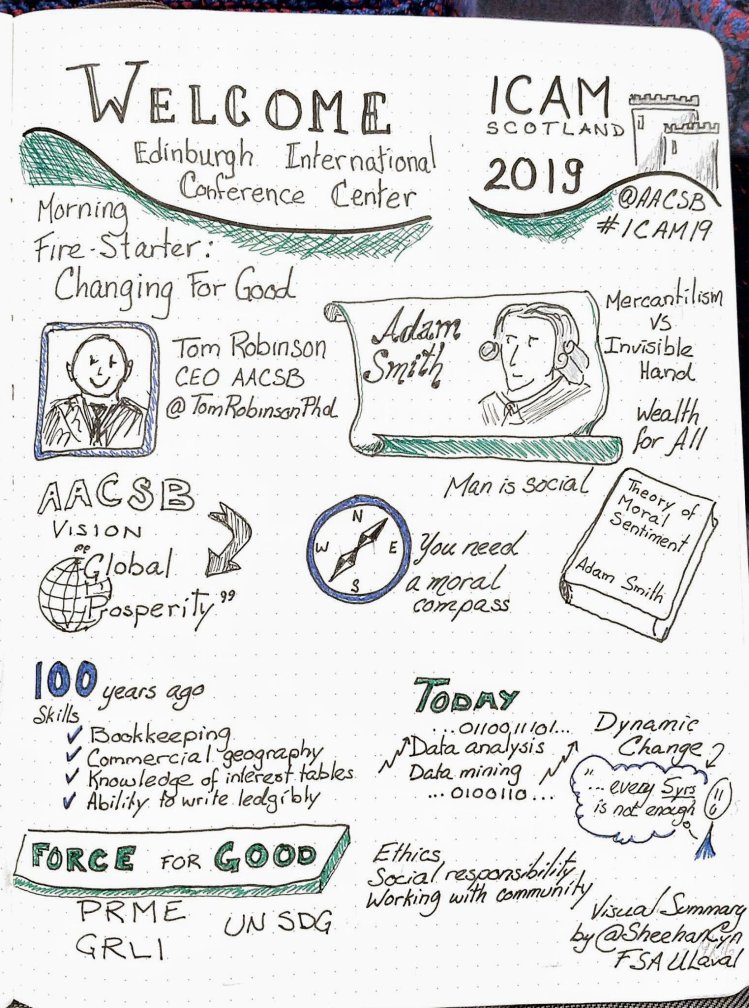 WELCOME
Edinburgh International
Conference Center
ICAM
SCOTLAND
2019
@AACSB
#ICAM19
Morning
Fire-Starter:
Changing For Good
Tom Robinson
CEO AACSB
@TomRobinsonPhd
Adam
Smith
Mercantilism
vs
Invisible
Hand
Wealth
for All
AACSB
VISION
"Global
Prosperity"
N
W E
S
You need
a moral
compass
Man is social
Theory of
Moral
Sentiment
Adam Smith
100 years ago
Skills
✓ Bookkeeping
✓ Commercial geography
✓ Knowledge of interest tables
✓ Ability to write ledgibly
TODAY
...0110011101...
Data analysis
Data mining
...0100110...
Dynamic
Change
"... every 5yrs
is not enough
FORCE FOR GOOD
PRME
GRLI
UN SDG
Ethics
Social responsibility
Working with community
Visual Summary
by @SheehanCyn
FSA ULaval